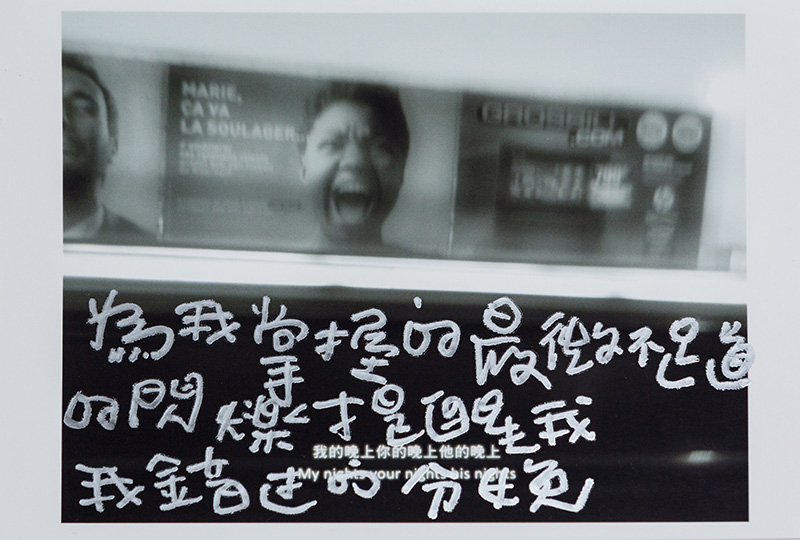 MARIE,
ÇA VA
LA SOULAGER...
GROSBILL
.COM
為我掌握的最微不足道
的閃爍才是我
我的晚上你的晚上他的晚上
My nights your nights his nights
我錯過的分娩